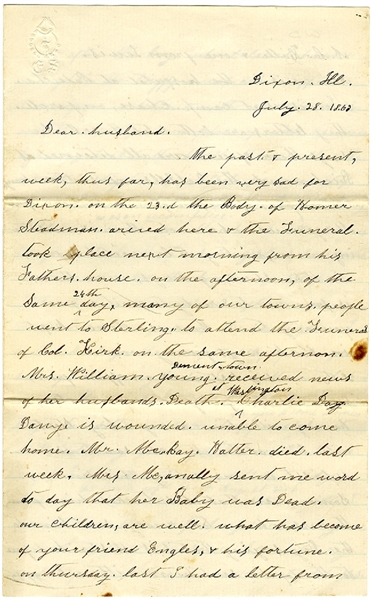 Dixon. Ill.
July. 28. 1863
Dear. husband.
The past & present,
week, thus far, has been very sad for
Dixon. on the 23.d the Body. of Homer
Steadman. arived here & the Funeral.
took place next morning from his
Fathers. house. on the afternoon, of the
24th
Same day, many of our towns. people
went to Sterling. to attend the Funeral
of Col. Kirk. on the same afternon.
Mrs. William. Young. received news
of her husbands. Death. Charlie Day
is wounded. unable to come
home. Mr. Mc.Kay. Hatter. died last
week. Mrs Mc,anally sent me word
to day that her Baby was Dead.
our Children, are well. what has become
of your friend Engles, & his fortune.
on thursday. last I had a letter from